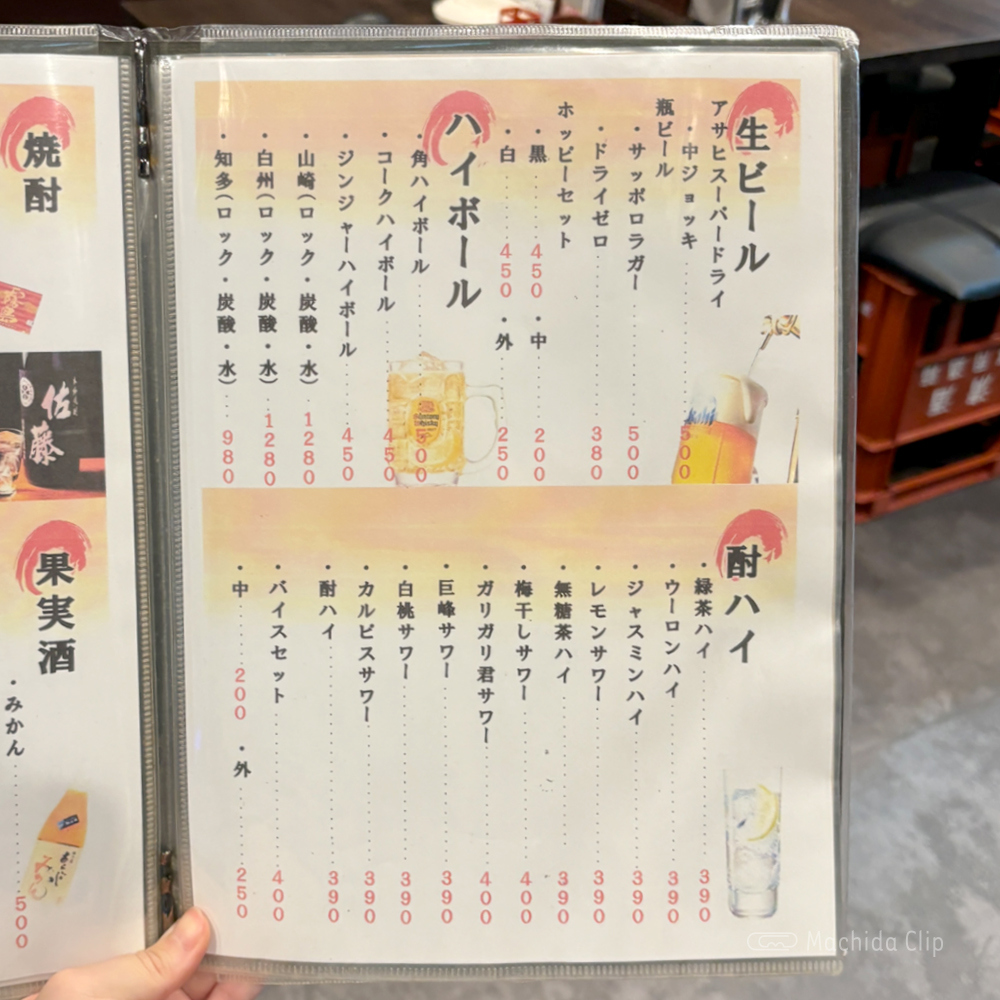 生ビール
アサヒスーパードライ
・中ジョッキ 500
瓶ビール
・サッポロラガー 500
・ドライゼロ 380
ホッピーセット
・黒 450 ・中 200
・白 450 ・外 250
ハイボール
・角ハイボール 500
・コークハイボール 450
・ジンジャーハイボール 450
・山崎(ロック・炭酸・水) 1280
・白州(ロック・炭酸・水) 1280
・知多(ロック・炭酸・水) 980
酎ハイ
・緑茶ハイ 390
・ウーロンハイ 390
・ジャスミンハイ 390
・レモンサワー 390
・無糖茶ハイ 390
・梅干しサワー 400
・ガリガリ君サワー 400
・巨峰サワー 390
・白桃サワー 390
・カルピスサワー 390
・酎ハイ 390
・バイスセット 400
・中 200 ・外 250
焼酎
佐藤
果実酒
・みかん 500
Asahi
Machida Clip